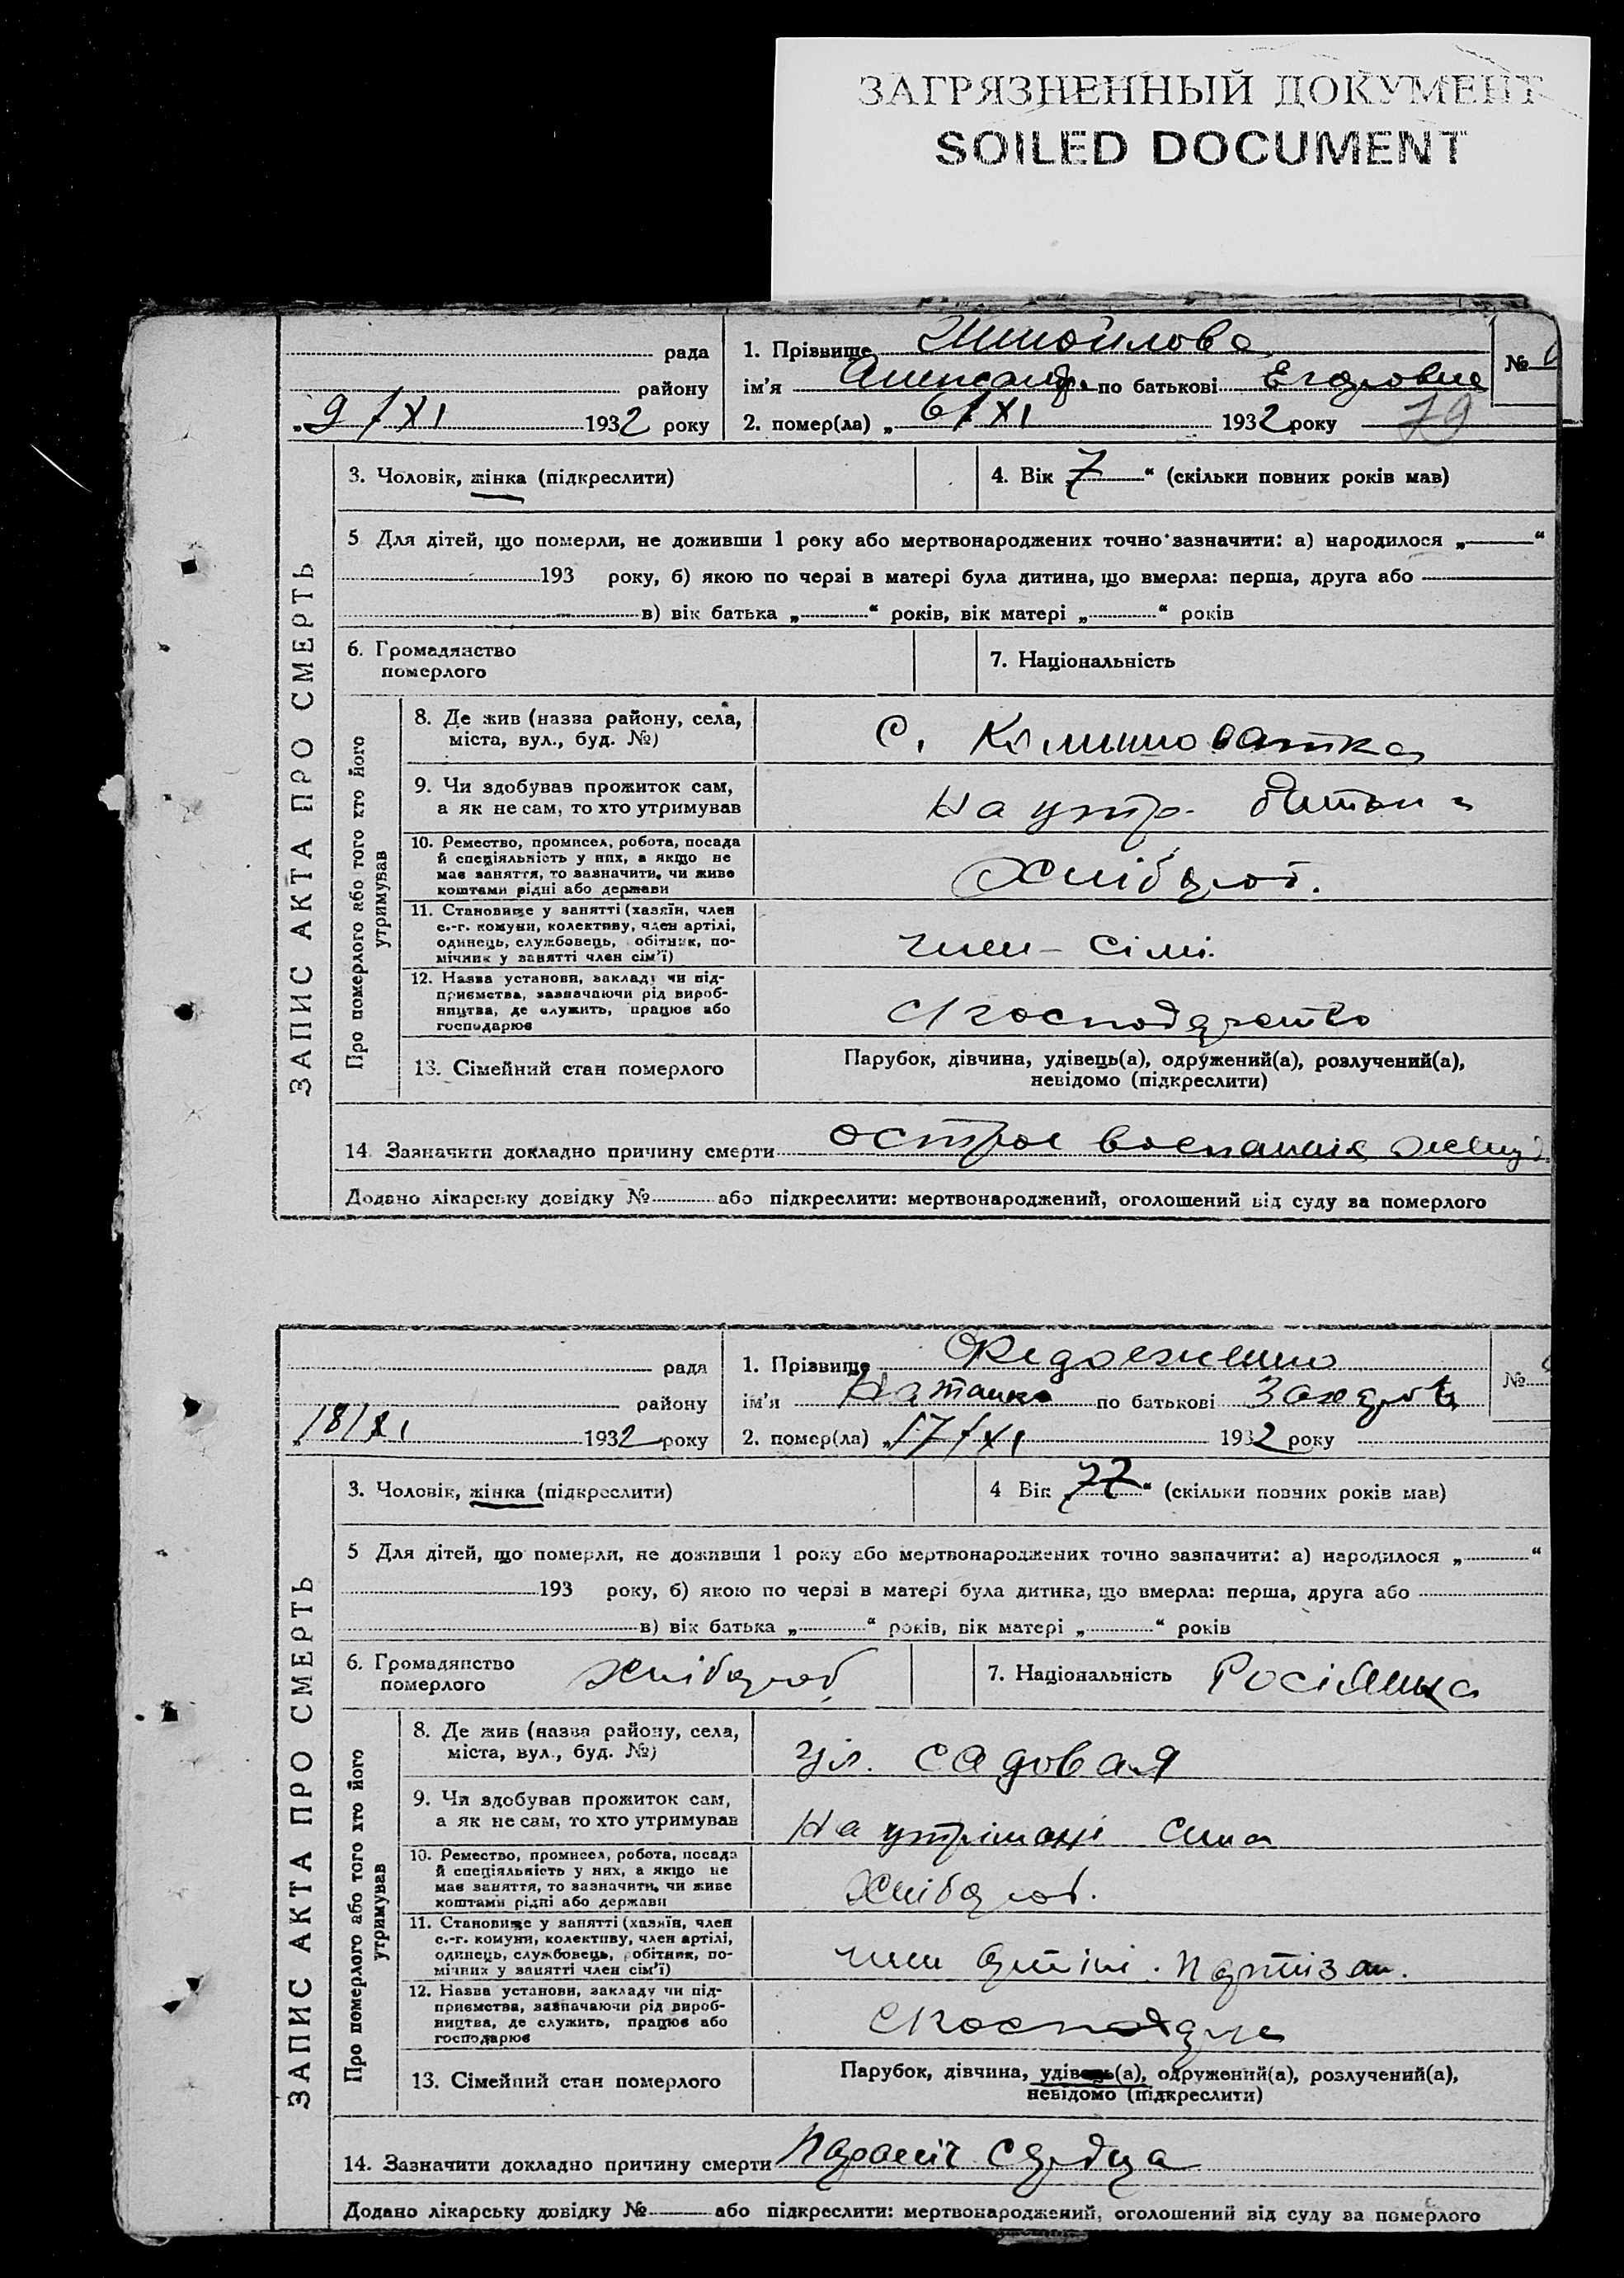 ЗАГРЯЗНЕННЫЙ ДОКУМЕНТ
SOILED DOCUMENT
рада
району
„9/XI 1932 року
1. Прізвище
ім'я по батькові Егоровна
2. помер(ла) „6/XI 1932 року
№
79
ЗАПИС АКТА ПРО СМЕРТЬ
3. Чоловік, жінка (підкреслити)
4. Вік „7“ (скільки повних років мав)
5 Для дітей, що померли, не доживши 1 року або мертвонароджених точно зазначити: а) народилося „ “
193 року, б) якою по черзі в матері була дитина, що вмерла: перша, друга або
в) вік батька „ “ років, вік матері „ “ років
6. Громадянство
померлого
7. Національність
Про померлого або того хто його
утримував
8. Де жив (назва району, села,
міста, вул., буд. №)
с.
9. Чи здобував прожиток сам,
а як не сам, то хто утримував
На утр.
10. Ремество, промисел, робота, посада
й спеціяльність у них, а якщо не
має заняття, то зазначити, чи живе
коштами рідні або держави
Хлібороб.
11. Становище у занятті (хазяїн, член
с.-г. комуни, колективу, член артілі,
одинець, службовець, обітник, по-
мічник у занятті член сім'ї)
член сімі.
12. Назва установи, закладу чи під-
приємства, зазначаючи рід вироб-
ництва, де служить, працює або
господарює
с/господарство
13. Сімейний стан померлого
Парубок, дівчина, удівець(а), одружений(а), розлучений(а),
невідомо (підкреслити)
14. Зазначити докладно причину смерти острое
Додано лікарську довідку № або підкреслити: мертвонароджений, оголошений від суду за померлого
рада
району
„18/XI 1932 року
1. Прізвище
ім'я по батькові
2. помер(ла) „17/XI 1932 року
№
ЗАПИС АКТА ПРО СМЕРТЬ
3. Чоловік, жінка (підкреслити)
4 Вік „77“ (скільки повних років мав)
5 Для дітей, що померли, не доживши 1 року або мертвонароджених точно зазначити: а) народилося „ “
193 року, б) якою по черзі в матері була дитина, що вмерла: перша, друга або
в) вік батька „ “ років, вік матері „ “ років
6. Громадянство
померлого
хлібороб
7. Національність
Про померлого або того хто його
утримував
8. Де жив (назва району, села,
міста, вул., буд. №)
ул. садовая
9. Чи здобував прожиток сам,
а як не сам, то хто утримував
На утрімані сина
10. Ремество, промисел, робота, посада
й спеціяльність у них, а якщо не
має заняття, то зазначити, чи живе
коштами рідні або держави
Хлібороб.
11. Становище у занятті (хазяїн, член
с.-г. комуни, колективу, член артілі,
одинець, службовець, робітник, по-
мічник у занятті член сім'ї)
член артілі. партізан.
12. Назва установи, закладу чи під-
приємства, зазначаючи рід вироб-
ництва, де служить, працює або
господарює
13. Сімейний стан померлого
Парубок, дівчина, удівець(а), одружений(а), розлучений(а),
невідомо (підкреслити)
14. Зазначити докладно причину смерти Параліч сердца
Додано лікарську довідку № або підкреслити: мертвонароджений, оголошений від суду за померлого